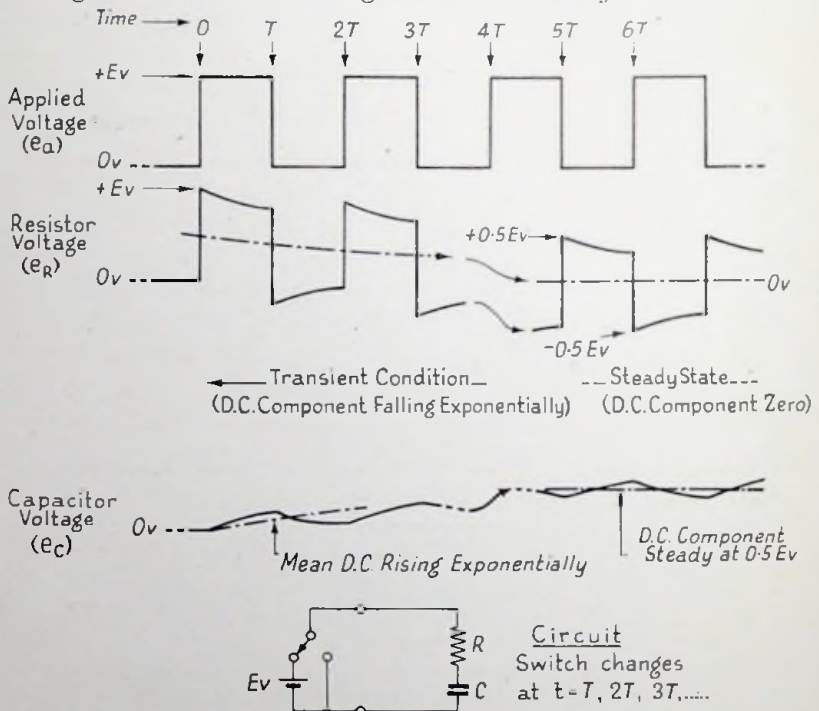 Time
0 T 2T 3T 4T 5T 6T
+Ev
Applied
Voltage
(ea)
0v
+Ev
Resistor
Voltage
(eR)
+0·5Ev
0v
0v
-0·5 Ev
Transient Condition
(D.C. Component Falling Exponentially)
Steady State
(D.C. Component Zero)
Capacitor
Voltage
(eC)
0v
Mean D.C. Rising Exponentially
D.C. Component
Steady at 0·5 Ev
Ev
R
C
Circuit
Switch changes
at t=T, 2T, 3T,.....